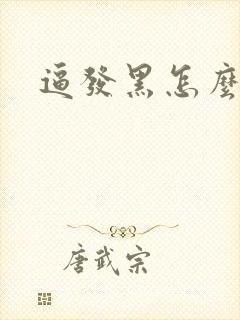 逼發黑怎麼
唐武宗